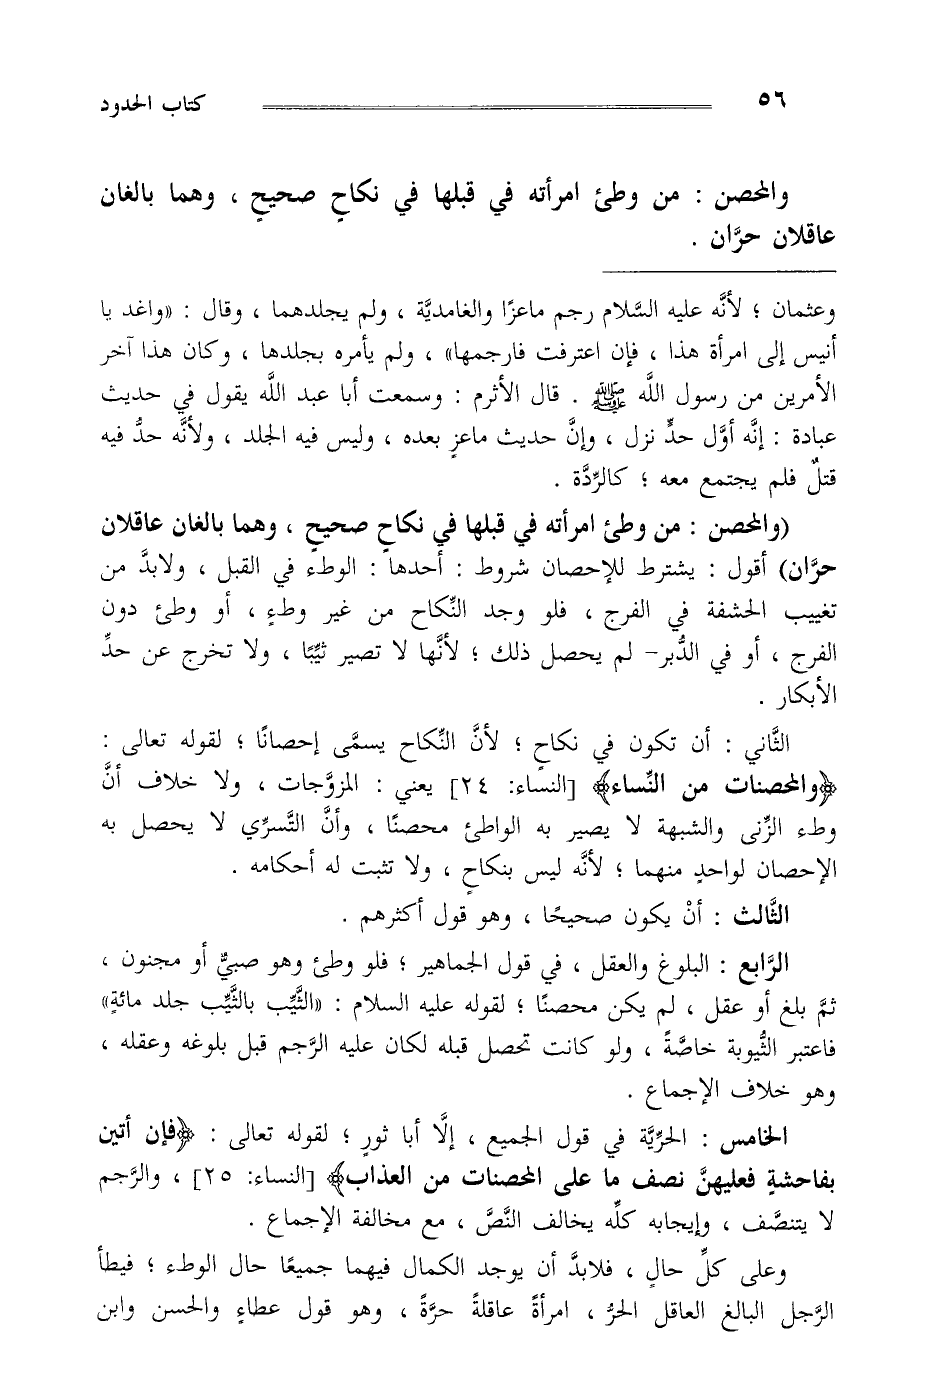 ٥٦ كتاب الحدود
والمحصن : من وطئ امرأته في قبلها في نكاحٍ صحيحٍ ، وهما بالغان
عاقلان حرَّان .
وعثمان ؛ لأنَّه عليه السَّلام رجم ماعزًا والغامديَّة ، ولم يجلدهما ، وقال : «واغد يا
أنيس إلى امرأة هذا ، فإن اعترفت فارجمها» ، ولم يأمره بجلدها ، وكان هذا آخر
الأمرين من رسول اللَّه ﷺ . قال الأثرم : وسمعت أبا عبد اللَّه يقول في حديث
عبادة : إنَّه أوَّل حدٍّ نزل ، وإنَّ حديث ماعزٍ بعده ، وليس فيه الجلد ، ولأنَّه حدٌّ فيه
قتلٌ فلم يجتمع معه ؛ كالرِّدَّة .
(والمحصن : من وطئ امرأته في قبلها في نكاحٍ صحيحٍ ، وهما بالغان عاقلان
حرَّان) أقول : يشترط للإحصان شروط : أحدها : الوطء في القبل ، ولابدَّ من
تغييب الحشفة في الفرج ، فلو وجد النِّكاح من غير وطءٍ ، أو وطئ دون
الفرج ، أو في الدُّبر- لم يحصل ذلك ؛ لأنَّها لا تصير ثيِّبًا ، ولا تخرج عن حدِّ
الأبكار .
الثَّاني : أن تكون في نكاحٍ ؛ لأنَّ النِّكاح يسمَّى إحصانًا ؛ لقوله تعالى :
﴿والمحصنات من النِّساء﴾ [النساء: ٢٤] يعني : المزوَّجات ، ولا خلاف أنَّ
وطء الزِّنى والشبهة لا يصير به الواطئ محصنًا ، وأنَّ التَّسرِّي لا يحصل به
الإحصان لواحدٍ منهما ؛ لأنَّه ليس بنكاحٍ ، ولا تثبت له أحكامه .
الثَّالث : أنْ يكون صحيحًا ، وهو قول أكثرهم .
الرَّابع : البلوغ والعقل ، في قول الجماهير ؛ فلو وطئ وهو صبيٌّ أو مجنون ،
ثمَّ بلغ أو عقل ، لم يكن محصنًا ؛ لقوله عليه السلام : «الثَّيِّب بالثَّيِّب جلد مائةٍ»
فاعتبر الثُّيوبة خاصَّةً ، ولو كانت تحصل قبله لكان عليه الرَّجم قبل بلوغه وعقله ،
وهو خلاف الإجماع .
الخامس : الحرِّيَّة في قول الجميع ، إلَّا أبا ثورٍ ؛ لقوله تعالى : ﴿فإن أتين
بفاحشةٍ فعليهنَّ نصف ما على المحصنات من العذاب﴾ [النساء: ٢٥] ، والرَّجم
لا يتنصَّف ، وإيجابه كلِّه يخالف النَّصَّ ، مع مخالفة الإجماع .
وعلى كلِّ حالٍ ، فلابدَّ أن يوجد الكمال فيهما جميعًا حال الوطء ؛ فيطأ
الرَّجل البالغ العاقل الحرُّ ، امرأةً عاقلةً حرَّةً ، وهو قول عطاءٍ والحسن وابن